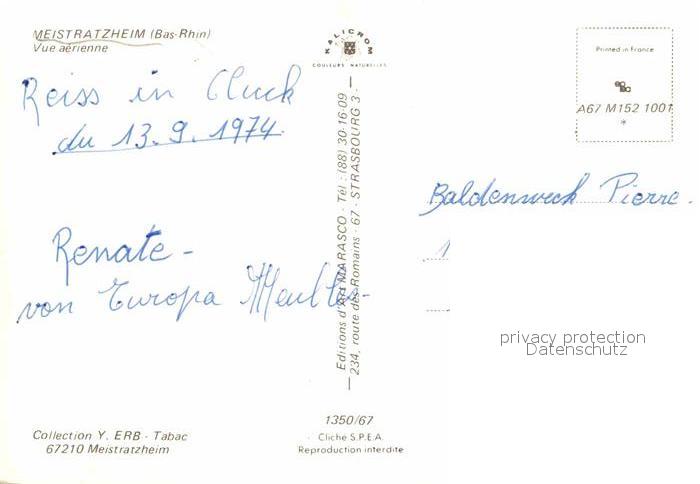 MEISTRATZHEIM (Bas-Rhin)
Vue aérienne
Reiss in Cluck
du 13.9.1974.
Renate -
von Europa Meubles -
Collection Y. ERB - Tabac
67210 Meistratzheim
KALICROM
COULEURS NATURELLES
Editions d'Art MARASCO - Tél : (88) 30-16-09
234, route des Romains - 67 - STRASBOURG 3
1350/67
Cliche S.P.E.A.
Reproduction interdite
Printed in France
A67 M152 1001
*
Baldenweck Pierre.
1
privacy protection
Datenschutz